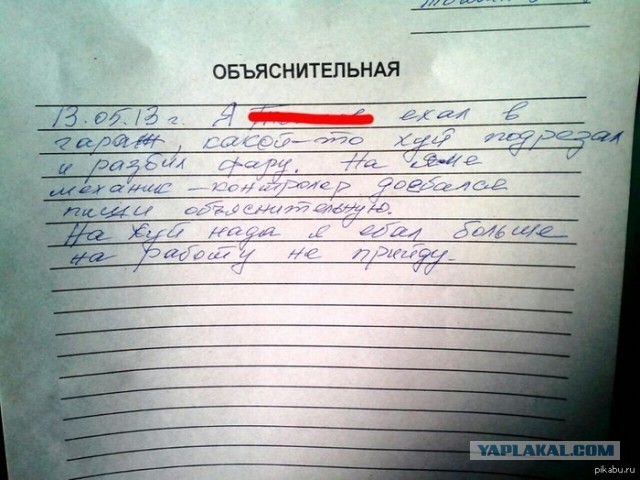 ОБЪЯСНИТЕЛЬНАЯ
13.05.13 г. Я ехал в
гараж, какой-то хуй подрезал
и разбил фару. На яме
механик-контролер доебался
пиши объяснительную.
На хуй нада я ебал больше
на работу не прийду.
YAPLAKAL.COM
pikabu.ru